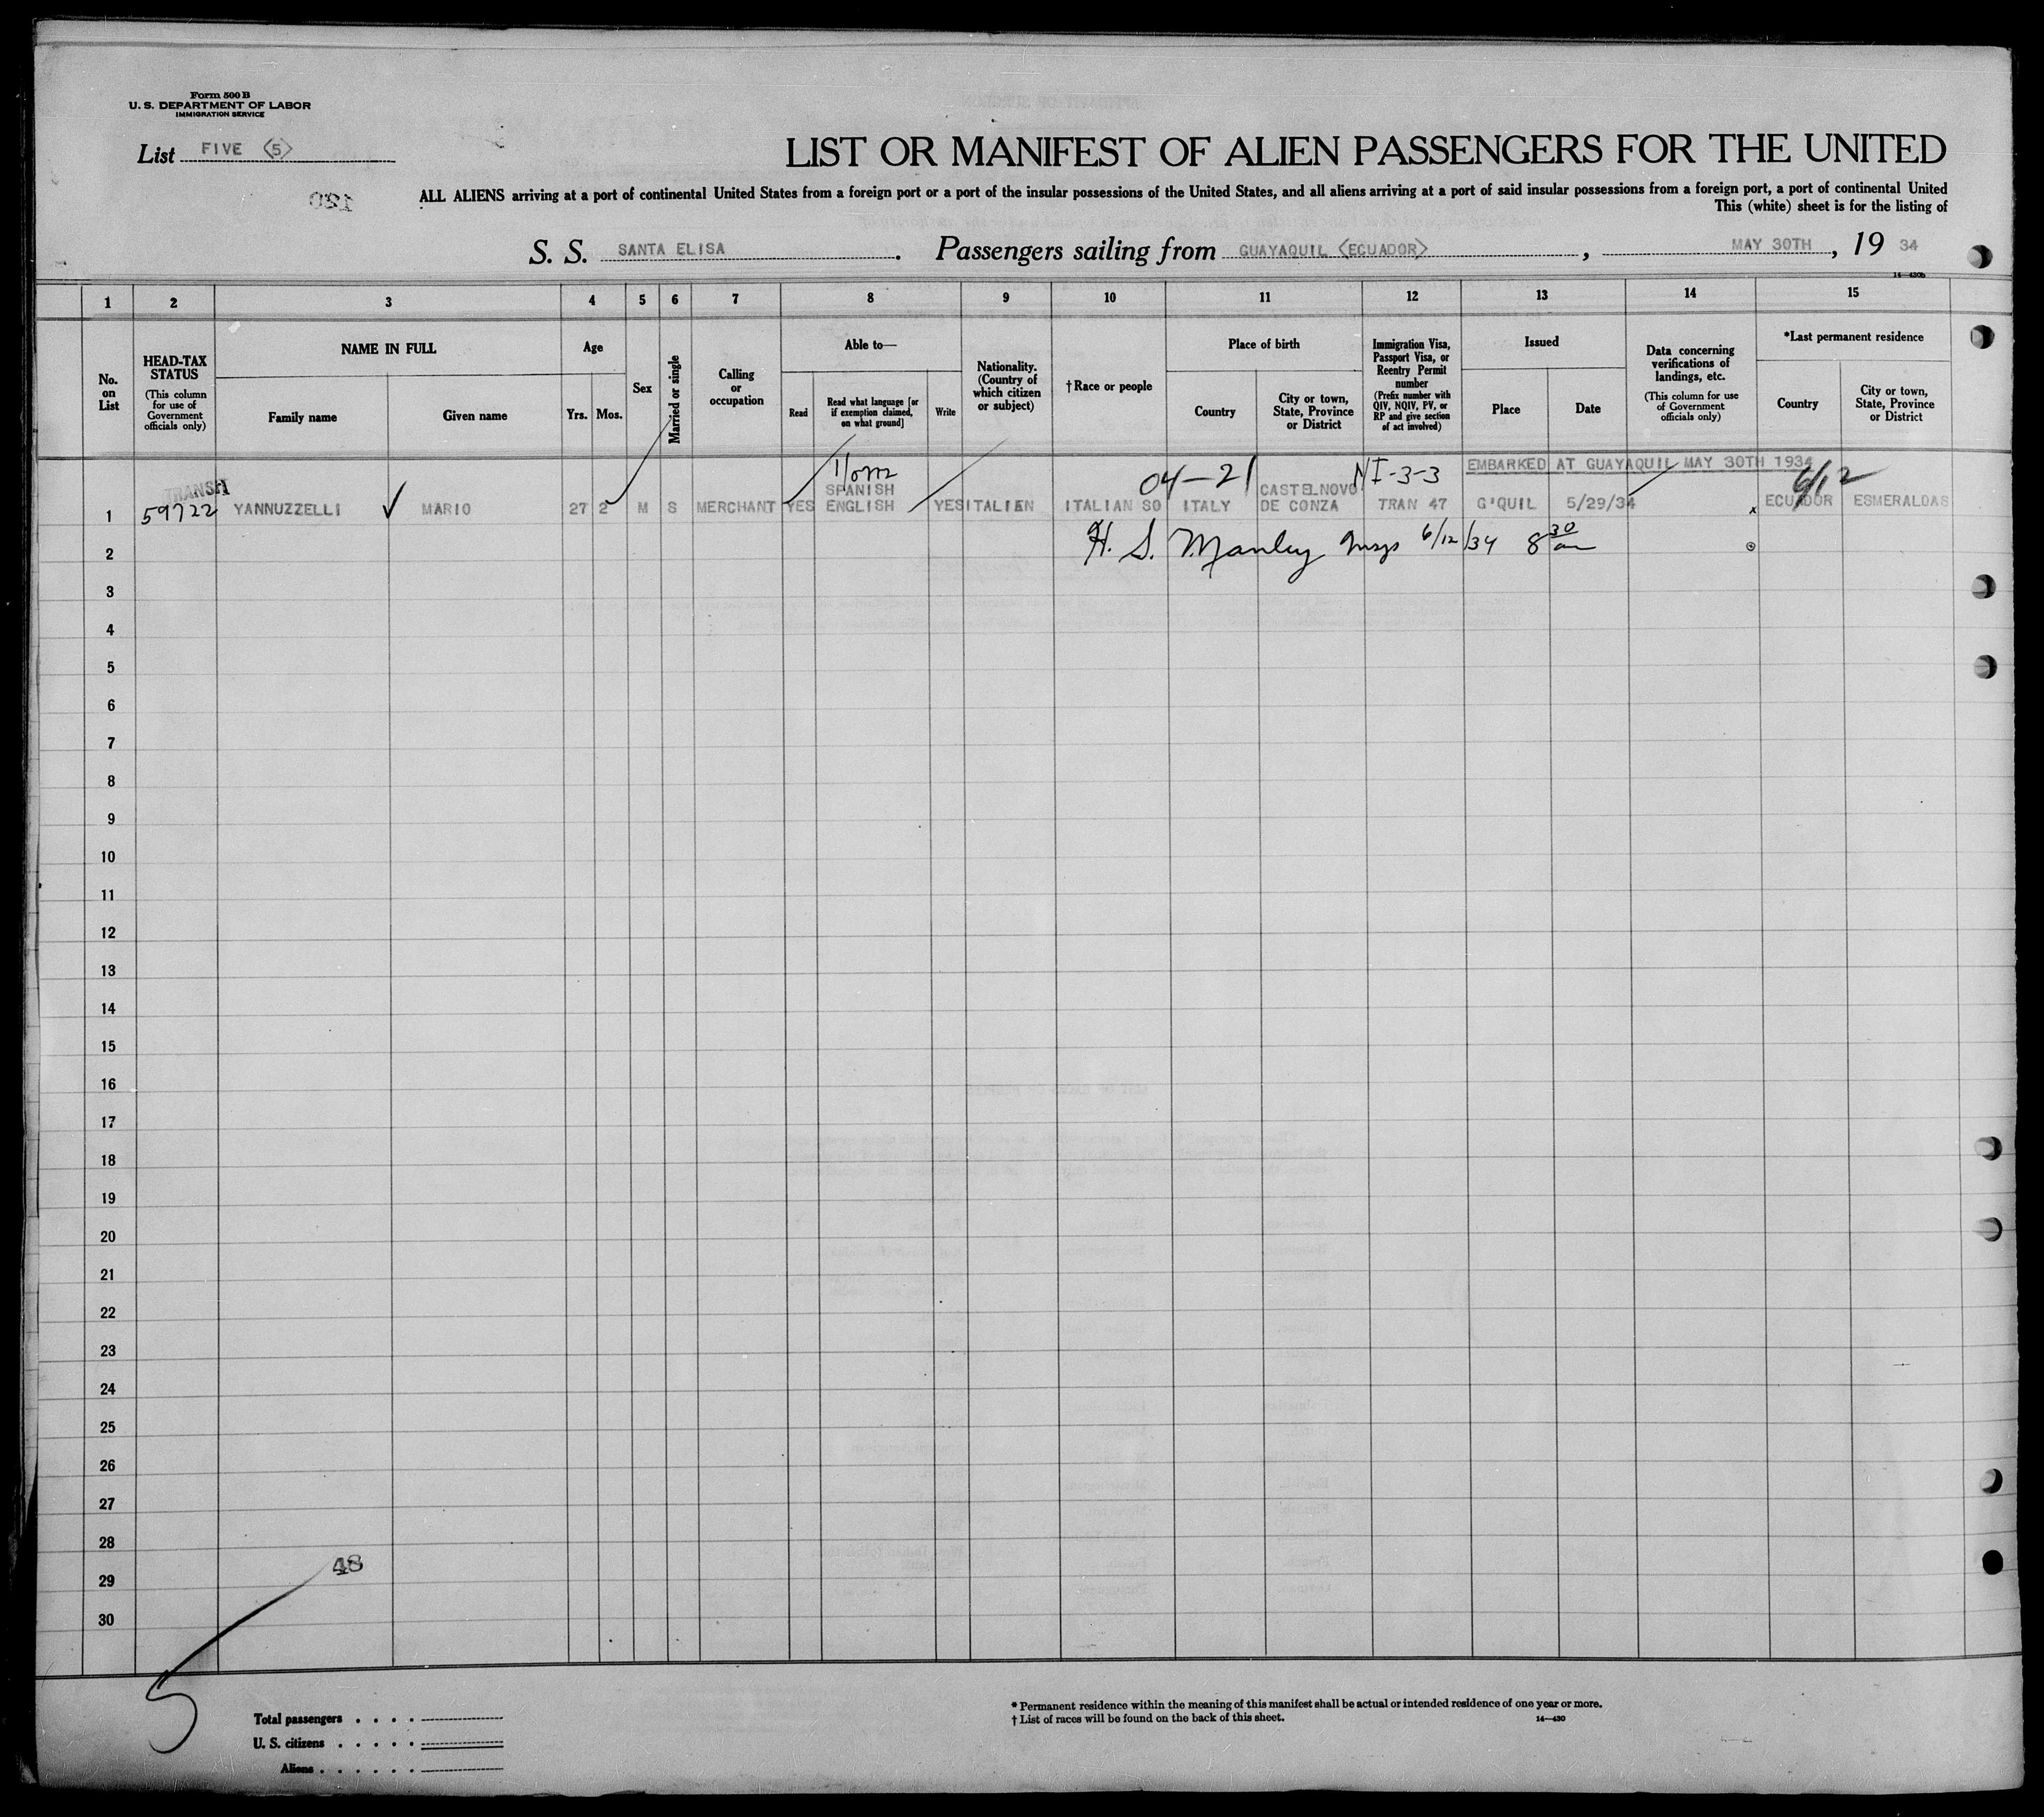 Form 500 B
U. S. DEPARTMENT OF LABOR
IMMIGRATION SERVICE
List FIVE (5)
120
LIST OR MANIFEST OF ALIEN PASSENGERS FOR THE UNITED
ALL ALIENS arriving at a port of continental United States from a foreign port or a port of the insular possessions of the United States, and all aliens arriving at a port of said insular possessions from a foreign port, a port of continental United
This (white) sheet is for the listing of
S. S. SANTA ELISA. Passengers sailing from GUAYAQUIL (ECUADOR), MAY 30TH, 19 34
14—430b
1 2 3 4 5 6 7 8 9 10 11 12 13 14 15
No. on List
HEAD-TAX STATUS
(This column for use of Government officials only)
NAME IN FULL
Family name
Given name
Age
Yrs.
Mos.
Sex
Married or single
Calling or occupation
Able to—
Read
Read what language [or if exemption claimed, on what ground]
Write
Nationality. (Country of which citizen or subject)
†Race or people
Place of birth
Country
City or town, State, Province or District
Immigration Visa, Passport Visa, or Reentry Permit number
(Prefix number with QIV, NQIV, PV, or RP and give section of act involved)
Issued
Place
Date
Data concerning verifications of landings, etc.
(This column for use of Government officials only)
*Last permanent residence
Country
City or town, State, Province or District
04-21 NI-3-3 EMBARKED AT GUAYAQUIL MAY 30TH 1934 6/12
TRANSIT
1 59722 YANNUZZELLI ✓ MARIO 27 2 M S MERCHANT YES SPANISH ENGLISH YES ITALIEN ITALIAN SO ITALY CASTELNOVO DE CONZA TRAN 47 G'QUIL 5/29/34 x ECUADOR ESMERALDAS
2 H. S. Manley Insp 6/12/34 8 30 am
3
4
5
6
7
8
9
10
11
12
13
14
15
16
17
18
19
20
21
22
23
24
25
26
27
28
48
29
30
5
Total passengers . . . .
U. S. citizens . . . . .
Aliens . . . . . .
* Permanent residence within the meaning of this manifest shall be actual or intended residence of one year or more.
† List of races will be found on the back of this sheet.
14—430